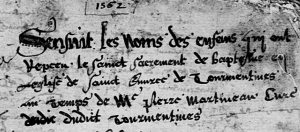 1562
Sensuit les noms des enfans qui ont
repceu le sainct sacrement de baptesme en
leglise de sainct de Tourmentines
au temps de Me Pierre Martineau Cure
dudict Tourmentines